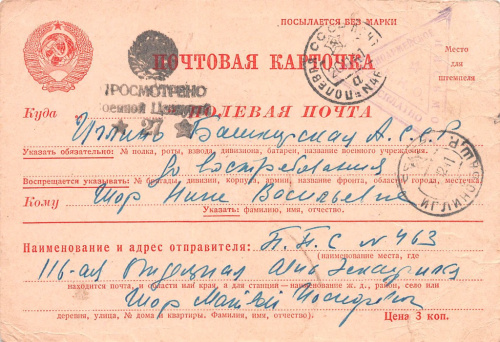 ПОСЫЛАЕТСЯ БЕЗ МАРКИ
ПОЧТОВАЯ КАРТОЧКА
Место
для
штемпеля
ПРОСМОТРЕНО
Военной Цензурой
27
ПОЛЕВАЯ ПОЧТА
Куда Башкирская А.С.С.Р.
Указать обязательно: № полка, роты, взвода, дивизиона, батареи, название военного учреждения.
до востребования
Воспрещается указывать: № бригады, дивизии, корпуса, армии, название фронта, области, города, местечка
Кому Шор Нине Васильевне
Указать: фамилию, имя, отчество.
Наименование и адрес отправителя: П.П.С № 463
(наименование места, где
116-ая Отдельная Авиа Эскадрилья
находится почта, и области или края, а для станций—наименование ж. д., район, село или
Шор
деревни, улица, № дома и квартиры. Фамилия, имя, отчество).
Цена 3 коп.